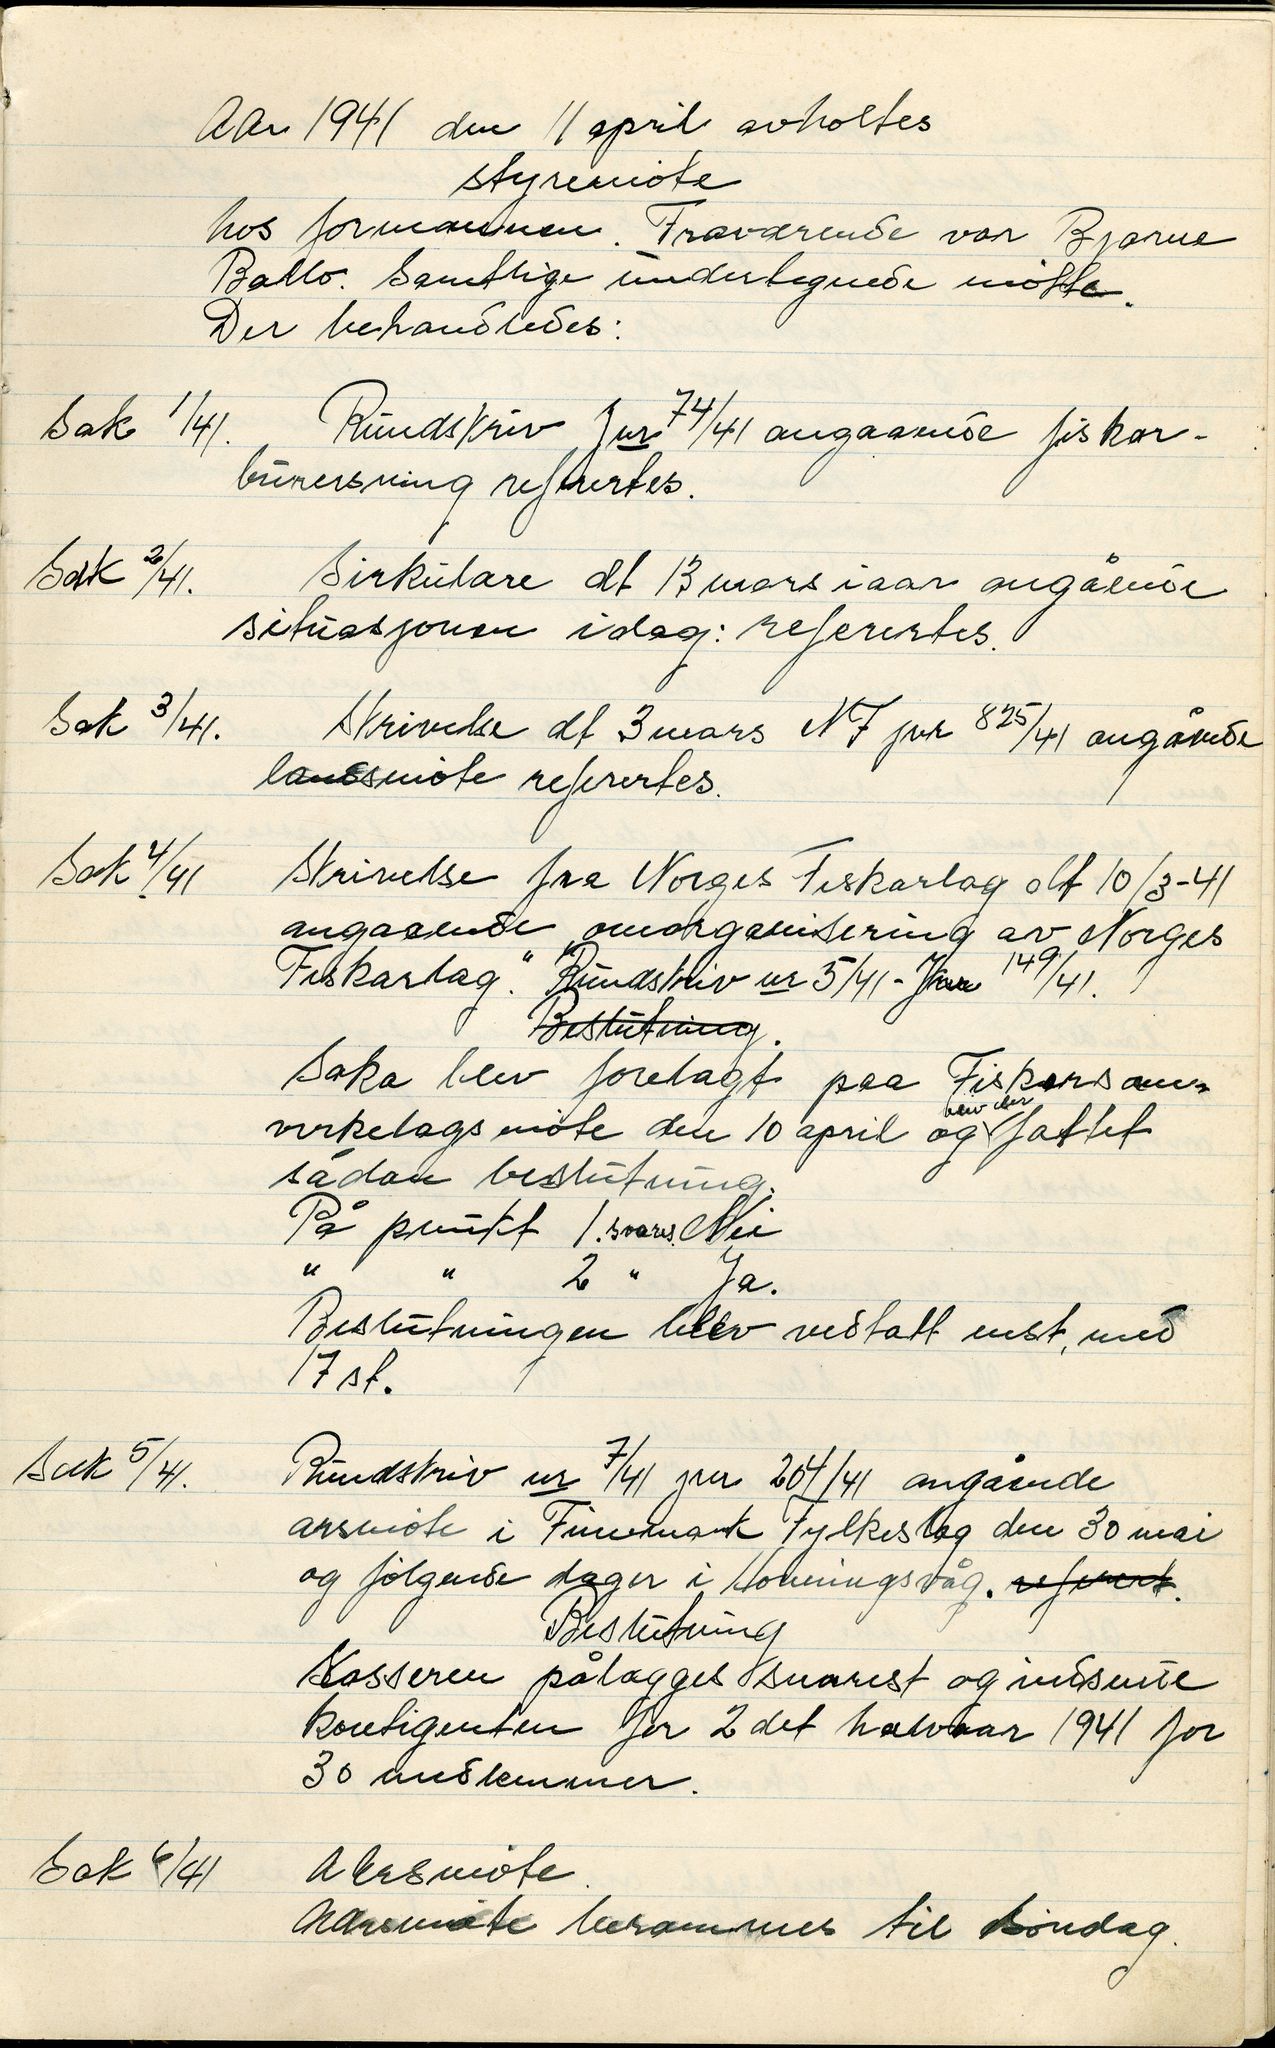 Aar 1941 den 11 april avholtes
styremöte
hos formannen. Fraværende var Bjarne
Ballo. Samtlige undertegnede mötte.
Der behandledes:
Sak 1/41. Rundskriv Jnr 74/41 angaaende fiskar-
bunersning refertes.
Sak 2/41. Sirkulare dt 13 mars iaar angående
situasjonen idag: refertes.
Sak 3/41. Skrivelse dt 3 mars NF jnr 825/41 angående
landsmöte refertes.
Sak 4/41 Skrivelse fra Norges Fiskarlag dt 10/3-41
angaaende "omorganisering av Norges
Fiskarlag." Rundskriv nr 5/41 - Jnr 149/41.
Beslutning.
Saka blev forelagt paa Fiskersam-
virkelagsmöte den 10 april og blev der fattet
sådan beslutning.
På punkt 1. svares. Nei
" " 2 " Ja.
Beslutningen blev vedtatt enst, med
17 st.
Sak 5/41. Rundskriv nr 7/41 jnr 204/41 angående
arsmöte i Finnmark Fylkeslag den 30 mai
og fölgende dager i Honningsvåg. referert.
Beslutning
Kasseren pålagges snarest og indsende
kontigenten for 2 det halvaar 1941 for
30 medlemmer.
Sak 6/41 Aarsmöte.
Aarsmöte berammes til söndag.